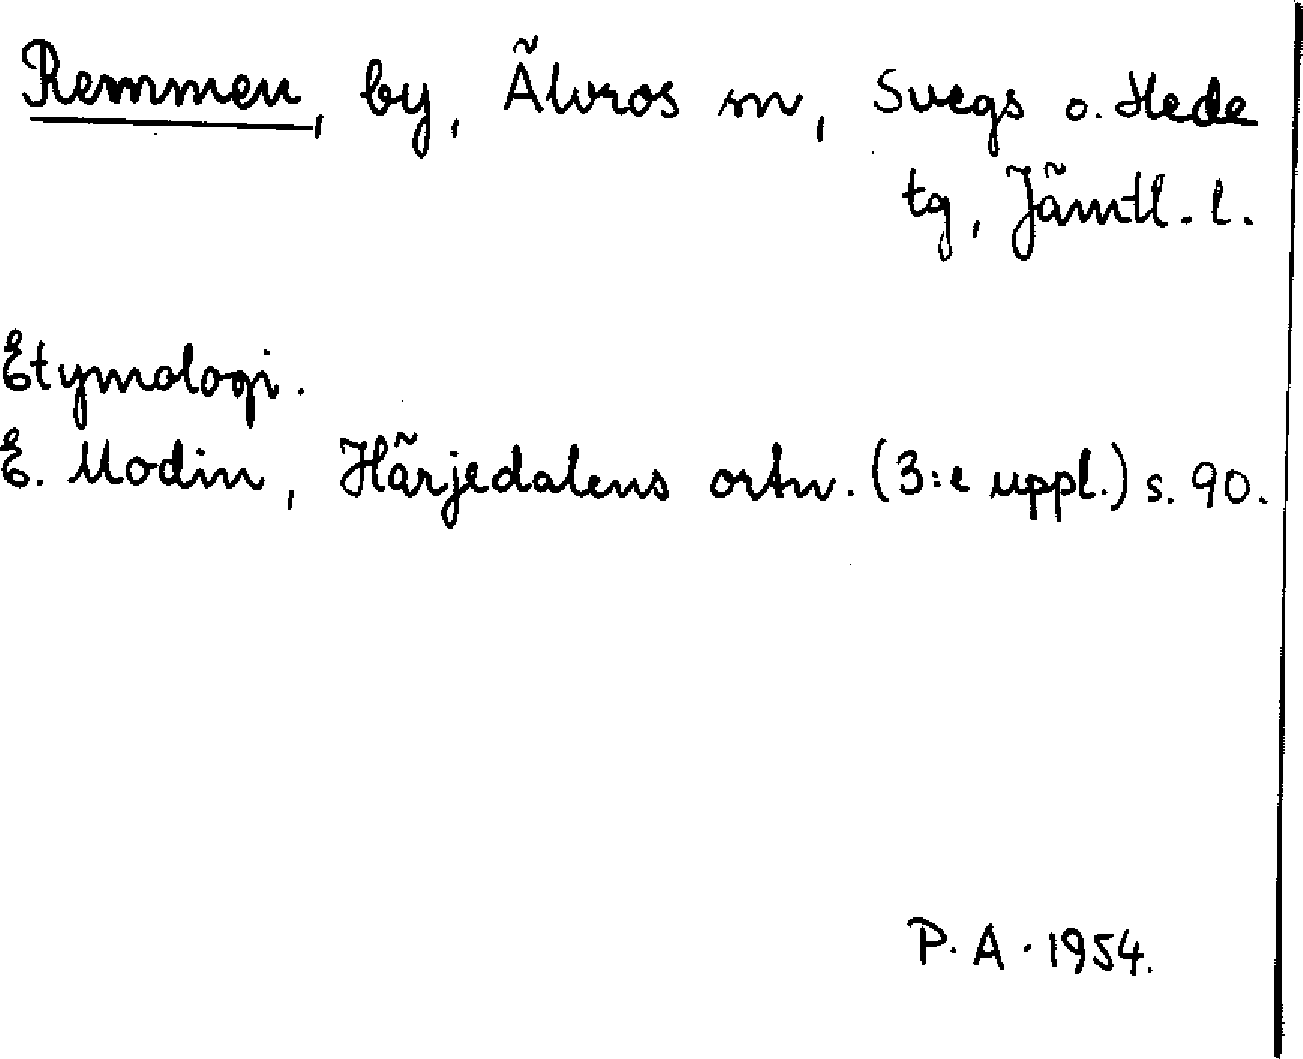 Remmen, by, Älvros sn, Svegs o. Hede
tg, Jämtl. l.
Etymologi.
E. Modin, Härjedalens ortn. (3:e uppl.) s. 90.
P. A. 1954.